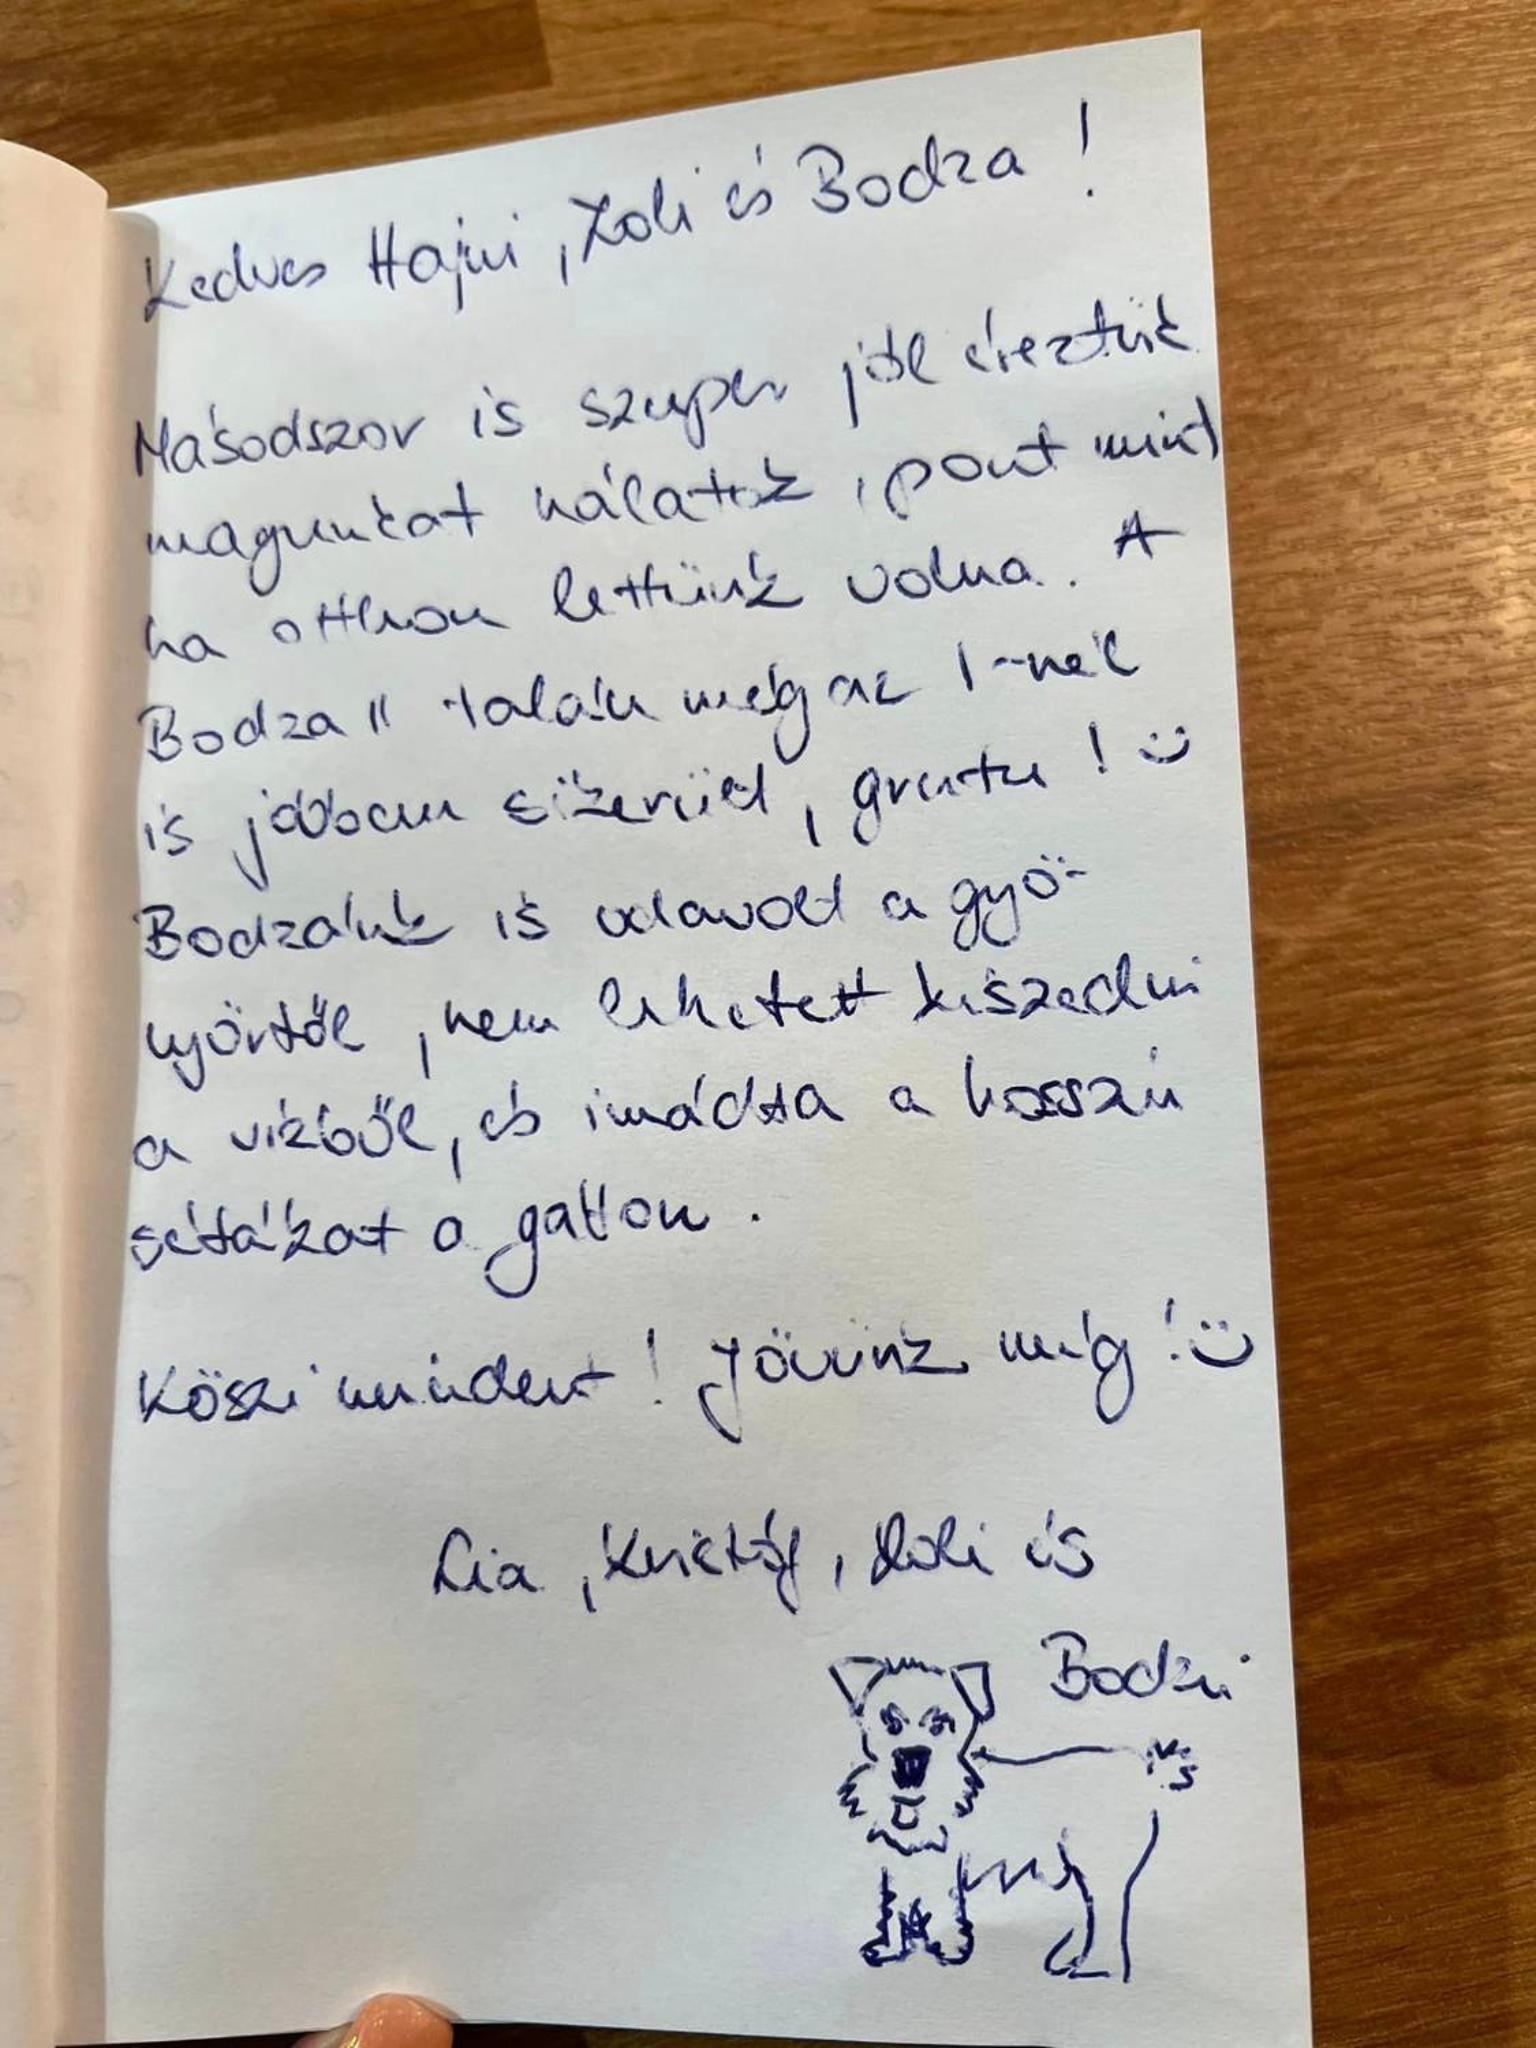 Kedves Hajni, Zoli és Bodza!
Másodszor is szuper jól éreztük
magunkat nálatok, pont mint
ha otthon lettünk volna. A
Bodza II talán még az 1-nél
is jobban sikerült, gratu! ü
Bodzánk is odavolt a gyö-
nyörtől, nem lehetett kiszedni
a vízből, és imádta a hosszú
sétákat a gáton.
Köszi mindent! Jövünk még! ü
Lia, Kristóf, Zoli és
Bodzi